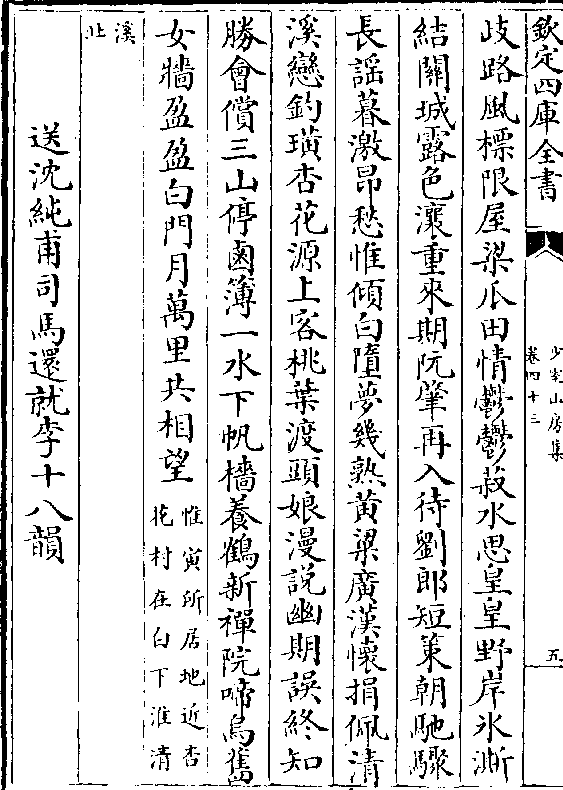 欽定四庫全書
少室山房集
卷四十三
五
歧路風標限屋梁瓜田情鬱鬱菽水思皇皇野岸氷澌
結關城露色瀼重來期阮肇再入待劉郎短策朝馳驟
長謡暮激昂愁惟傾白墮夢幾熟黄粱廣漢懷捐佩清
溪戀釣璜杏花源上客桃葉渡頭娘漫說幽期誤終知
勝會償三山停鹵簿一水下帆檣養鶴新禪院啼烏舊
女牆盈盈白門月萬里共相望
惟寅所居地近杏
花村在白下淮清
溪
北
送沈純甫司馬還就李十八韻